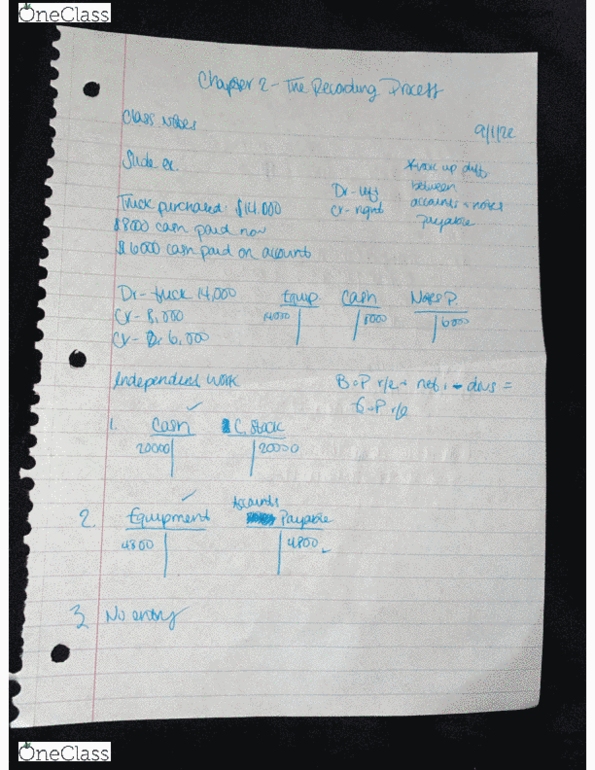 OneClass
Chapter 2 - The Recording Process
Class Notes
9/1/22
Slide ex.
*look up diff
between
accounts + notes
payable
Dr - left
Cr - right
Truck purchased: $14,000
$8000 cash paid now
$6000 cash paid on account
Dr - truck 14,000
Cr - 8,000
Cr - 6,000
Equip. Cash Notes P.
14000 8000 6000
Independent Work
B.O.P r/e + net i - divs =
E.O.P r/e
1. Cash C. Stock
20000 20000
2. Equipment Accounts Payable
4800 4800
3. No entry
OneClass